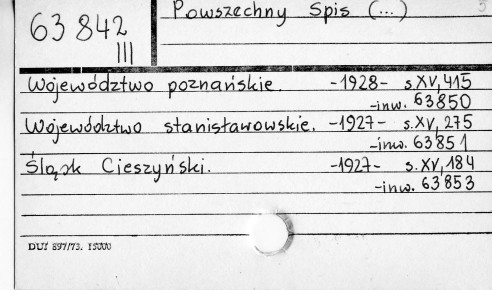 63 842
III
Powszechny Spis (...)
5
Województwo poznańskie. -1928- s.XV, 415
-inw. 63850
Województwo stanisławowskie. -1927- s.XV, 275
-inw. 63851
Śląsk Cieszyński. -1927- s.XV, 184
-inw. 63853
DUY 897/73. 15000